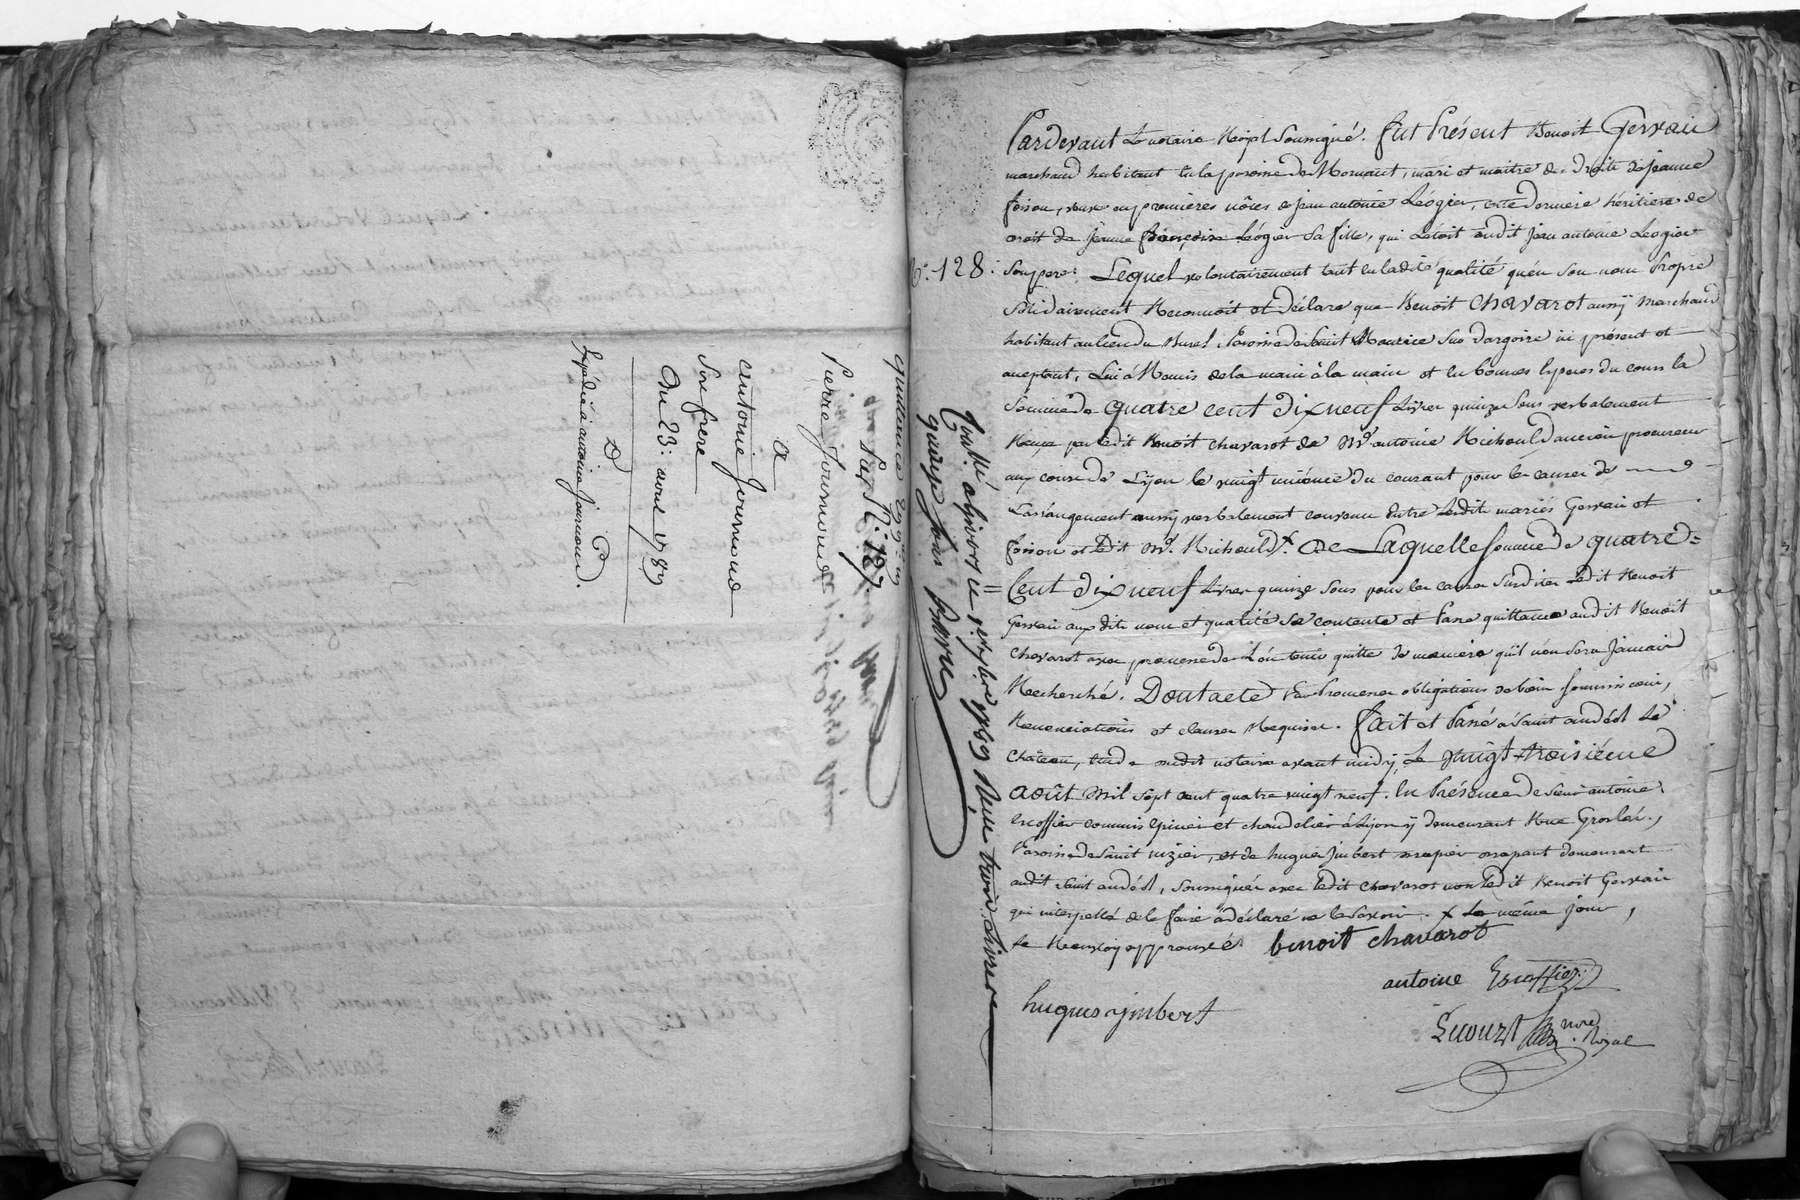 quittance 
Pay N.º 127
Pierre Journoud
a
antoine Journoud
son frere
Du 23: avril 1789
Expédié à antoine Journoud.
N.º 128:
Pardevant Le notaire Royal Soussigné. fut Présent Benoit Gervais
marchand habitant en la paroisse de Mornant, mari et maitre des droits de jeanne
foison, veuve en premieres nôces de jean antoine Léogier, cette derniere héritiere de
droit de jeanne françoise Léogier sa fille, qui Letoit dudit jean antoine Leogier
son pere: Lequel volontairement tant en ladite qualité qu'en son nom Propre
Solidairement Reconnoit et déclare que Benoit Chavarot aussÿ marchand
habitant au lieu du Buret, Paroisse de Saint Maurice Sur dargoire ici présent et
acceptant, Lui a Remis de la main à la main et en bonnes especes du cours la
Somme de quatre cent dix neuf Livres quinze Sous verbalement
Reçue par ledit Benoit chavarot de Mr. antoine Richould ancien procureur
aux cours de Lÿon le vingt unieme du courant pour les causes de
Larrangement aussÿ verbalement convenu entre lesdits mariés Gervais et
foison et ledit Mr. Richould x. De Laquelle somme de quatre
Cent dix neuf Livres quinze Sous pour les causes Susdites Ledit Benoit
Gervais auxdits nom et qualité Se contente et Passe quittance audit Benoit
Chavarot avec promesse de L'en tenir quitte de maniere qu'il n'en sera Jamais
Recherché. Dont acte Par Promesses obligations de bien soumissions,
Renonciations et clauses Requises. fait et Passé à Saint andéol Le
Château, Etude dudit notaire avant midy, Le vingt-troisiéme
août Mil Sept cent quatre vingt neuf. En Présence de sieur antoine
Escoffier commis Epicier et chandelier à Lyon ÿ demeurant Rue Grolée,
Paroisse de Saint nizier, et de hugues Jmbert demeurant
audit Saint andéol, Soussignés avec ledit Chavarot non Ledit Benoit Gervais
qui interpellé de le faire à déclaré ne le Savoir. x Le même jour,
le Renvoy approuvé. benoit Chavarot
antoine Escoffier
hugues ymbert
Lecourt nore. Royal
Contlé. a Givors le 1789 Reçu trois Livres
quinze sous